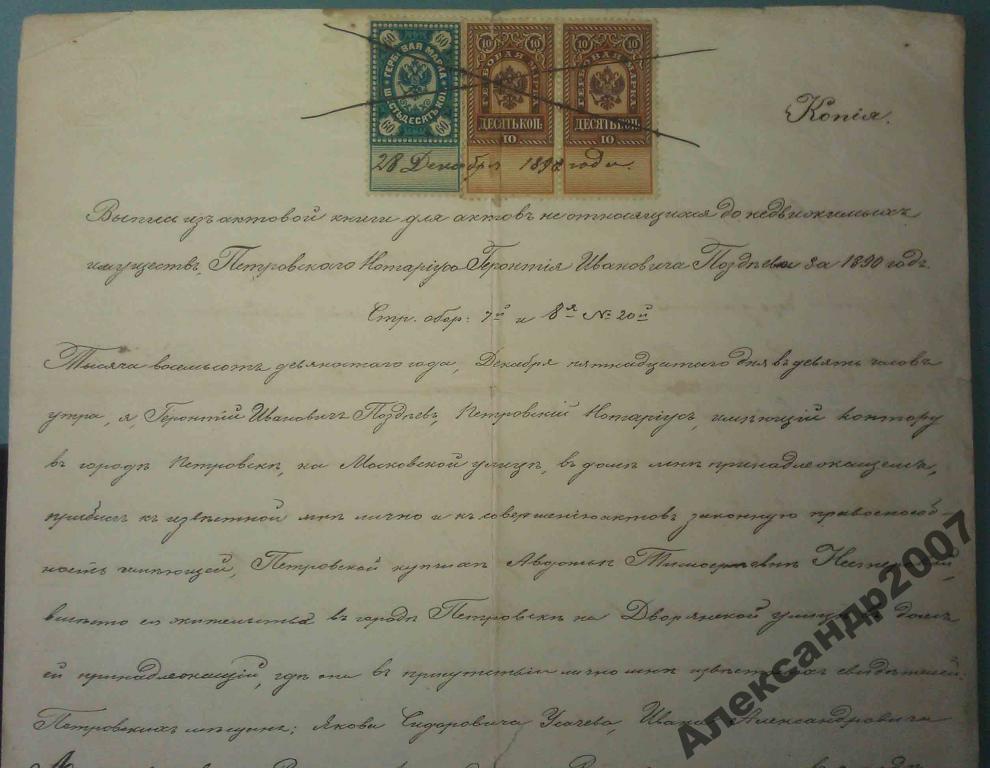 60 60
ГЕРБОВАЯ МАРКА
60 60
10 10
ГЕРБОВАЯ МАРКА
ДЕСЯТЬ КОП.
10
10 10
ГЕРБОВАЯ МАРКА
ДЕСЯТЬ КОП.
10
Копія.
28 Декабря 1898 года.
Выпись изъ актовой книги для актовъ не относящихся до недвижимыхъ
имуществъ, Петровскаго Нотаріуса Геронтія Ивановича Позднева за 1890 годъ.
Стр. обор: 7й и 8я № 20й
Тысяча восемьсотъ девяностаго года, Декабря пятнадцатаго дня въ девять часовъ
утра, я, Геронтій Ивановичъ Поздневъ, Петровскій Нотаріусъ, имѣющій контору
въ городѣ Петровскѣ, на Московской улицѣ, въ домѣ мнѣ принадлежащемъ,
прибылъ къ извѣстной мнѣ лично и къ совершенію актовъ законную правоспособ-
ность имѣющей, Петровской купчихѣ Авдотьѣ Тимофеевнѣ
въ мѣсто ея жительства въ городѣ Петровскѣ на Дворянской улицѣ домъ
ей принадлежащій, гдѣ она въ присутствіи лично мнѣ извѣстныхъ свидѣтелей:
Петровскихъ мѣщанъ: Якова Сидоровича Усачева, Ивана Александровича
Александр2007